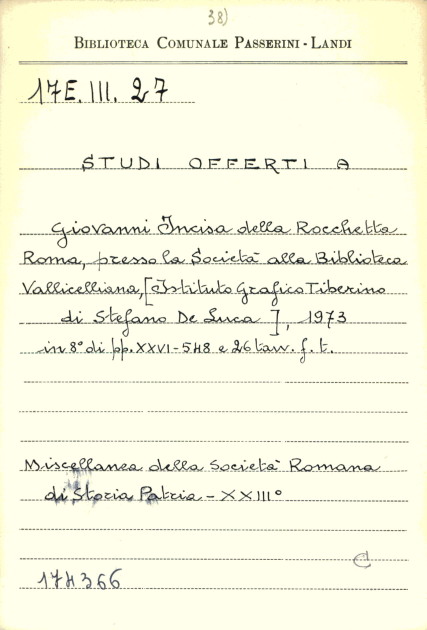 38)
BIBLIOTECA COMUNALE PASSERINI - LANDI
17E. III. 27
STUDI OFFERTI A
Giovanni Incisa della Rocchetta
Roma, presso la Società alla Biblioteca
Vallicelliana, [Istituto Grafico Tiberino
di Stefano De Luca], 1973
in 8° di pp. XXVI-548 e 26 tav. f. t.
Miscellanea della Società Romana
di Storia Patria - XXIII°
C
174366